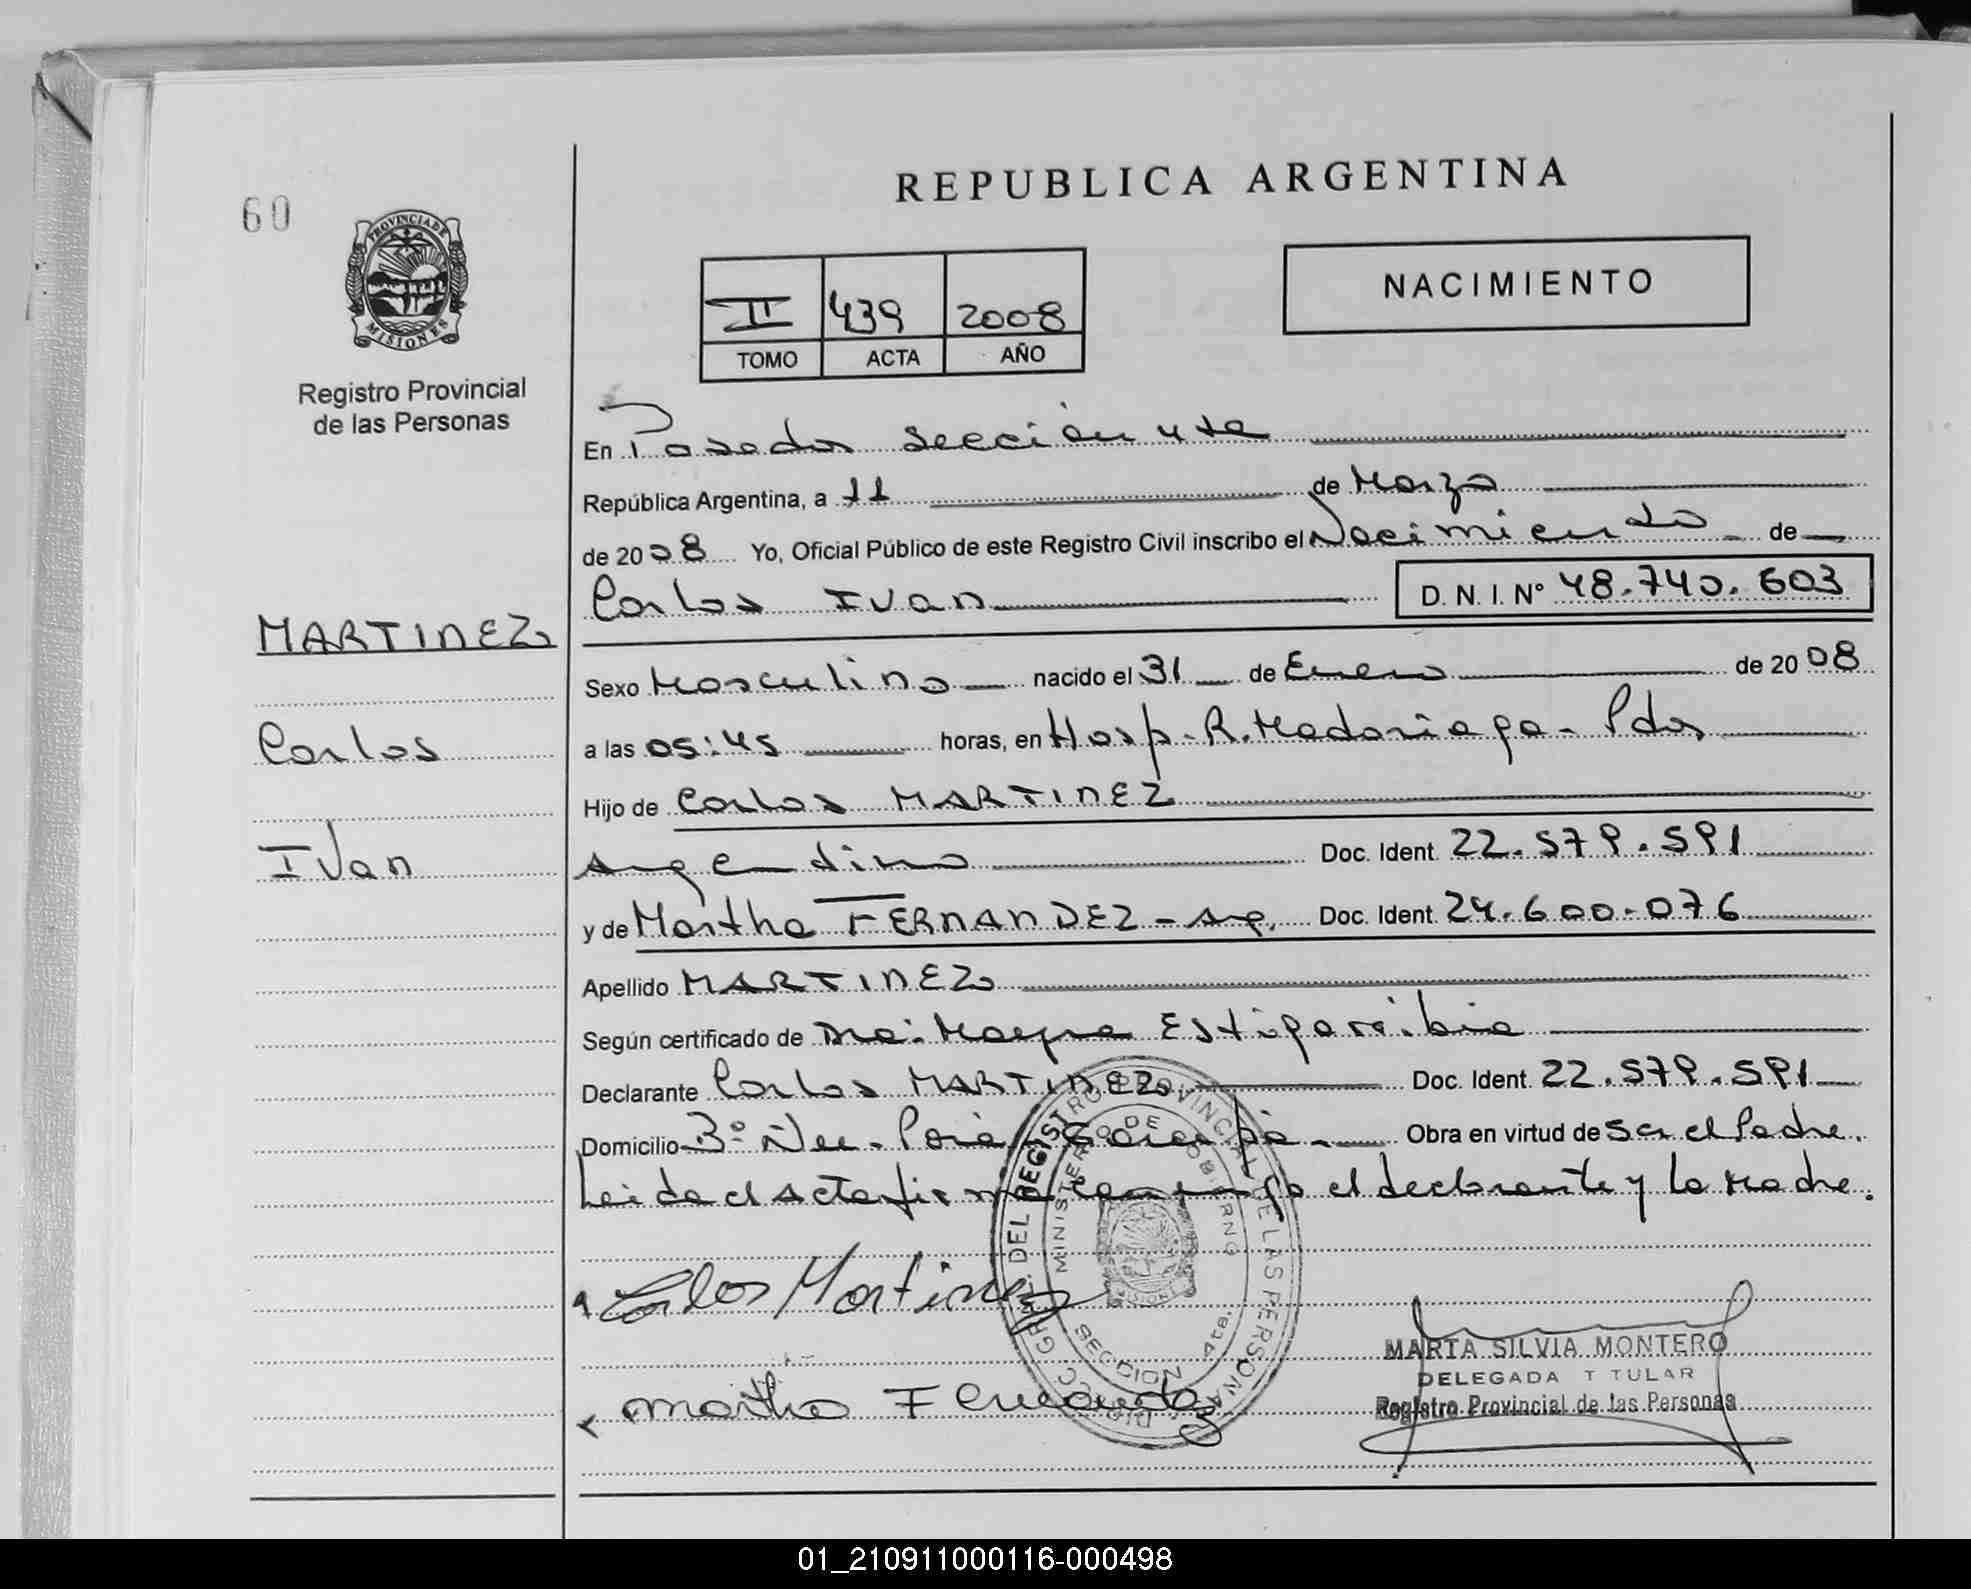 REPUBLICA ARGENTINA
60
PROVINCIA DE MISIONES
Registro Provincial
de las Personas
II 439 2008
TOMO ACTA AÑO
NACIMIENTO
En Posadas Sección 4ta
República Argentina, a 11 de Marzo
de 2008 Yo, Oficial Público de este Registro Civil inscribo el Nacimiento de
Carlos Ivan D. N. I. Nº 48.740.603
MARTINEZ
Carlos
Ivan
Sexo Masculino nacido el 31 de Enero de 2008
a las 05:45 horas, en Hosp. R. Madariaga - Pdas
Hijo de Carlos MARTINEZ
Argentino Doc. Ident. 22.579.591
y de Martha FERNANDEZ - Arg. Doc. Ident. 24.600.076
Apellido MARTINEZ
Según certificado de Dra: Mayra Estigarribia
Declarante Carlos MARTINEZ Doc. Ident. 22.579.591
Domicilio Bº Ñu - Porá - Garupá - Obra en virtud de ser el Padre.
Leida el Acta firma conmigo el declarante y la Madre.
Carlos Martinez
Martha Fernandez
DEL REGISTRO PROVINCIAL DE LAS PERSONAS
MINISTERIO DE GOBIERNO
SECCION 4ta.
MARTA SILVIA MONTERO
DELEGADA TITULAR
Registro Provincial de las Personas
01_210911000116-000498